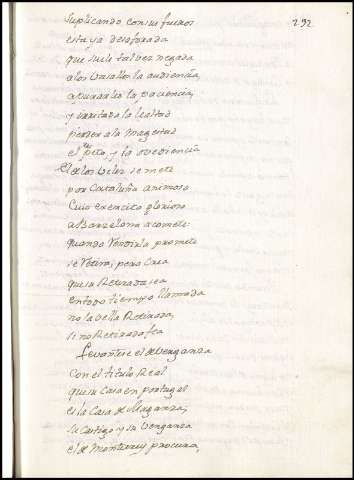 232
Suplicando con sus fueros
esta ya desaforada
que suele tal vez negada
a los vasallos la audiencia,
apurarles la paciencia,
y irritada la lealtad
perder a la magestad
el respto, y la ovediencia
El de los Velez se mete
por Cataluña animoso
Cuio exercito glorioso
a Barzelona acomete:
quando Rendirla promete
se Retira, pero Crea
que su Retirada sea
en todo tiempo llamada
no la vella Retirada,
si no Retirada fea
Levantase el de Verganza
con el titulo Real
que su Casa en portugal
es la Casa de Maganza,
su Castigo y su Venganza
el de Monterrey procura,